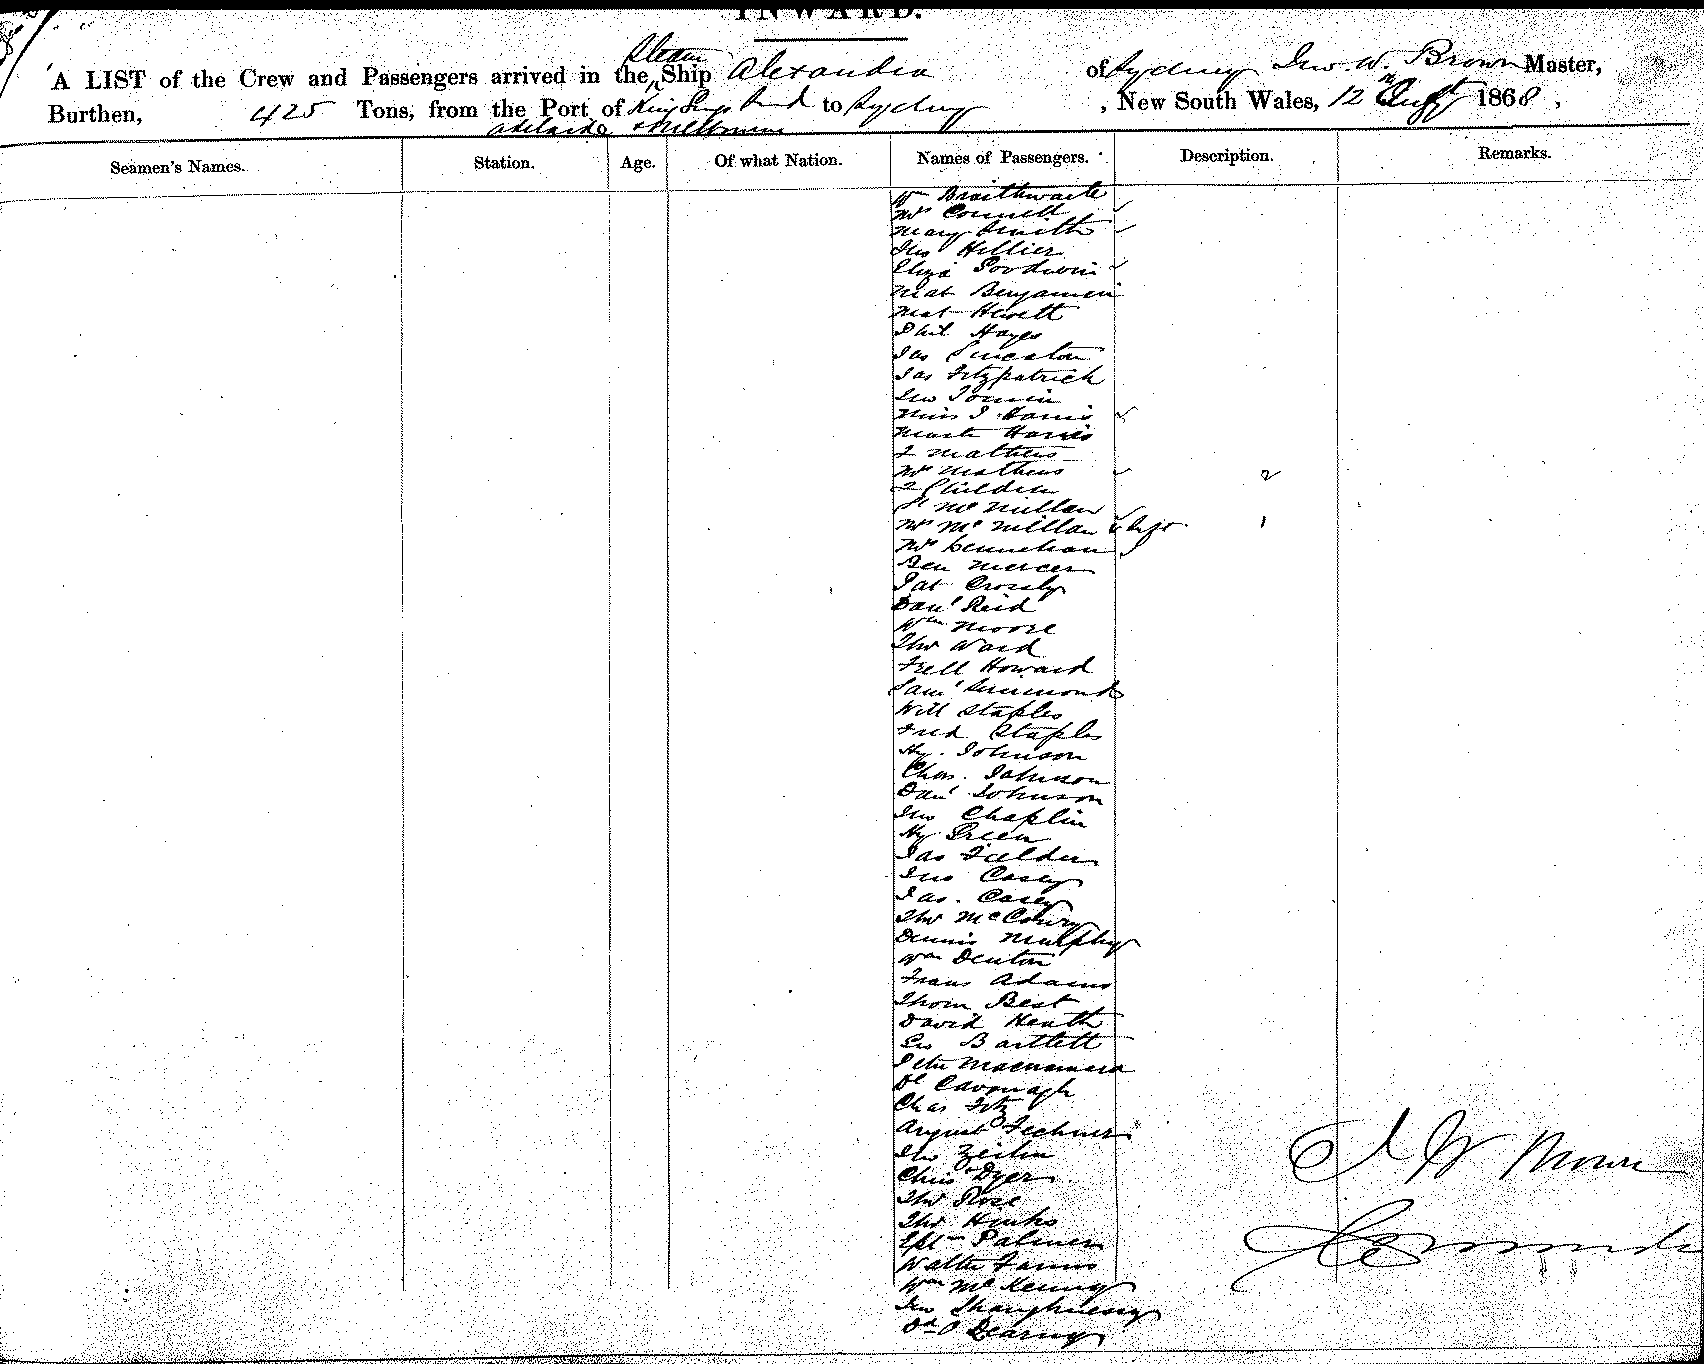 INWARD.
Steam
A LIST of the Crew and Passengers arrived in the Ship Alexandra of Sydney Jno. W. Brown Master,
Burthen, 425 Tons, from the Port of to Sydney , New South Wales, 12 Augt 1868 ,
Adelaide & Melbourne
Seamen's Names. Station. Age. Of what Nation. Names of Passengers. Description. Remarks.
Wm Braithwaite
Mrs Connell
Mary Smith
Jno Hillier
Eliza Goodwin
Nat Benjamin
Nat Hewett
Phil Hayes
Jas
Jas Fitzpatrick
Jno
Miss J Harris
Harris
J Mathews
Mrs Mathews 2
2 Children
McMillan
Mrs McMillan & Inft 1
Mrs
Geo Mercer
Pat Crossly
Danl Reid
Wm Moore
Thos Ward
Howard
Saml Simmonds
Will Staples
Fred Staples
Hy. Johnson
Chas. Johnson
Danl Johnson
Jno Chaplin
Hy Green
Jas Fielder
Jno Casey
Jas. Casey
Thos McCoury
Dennis Murphy
Wm Denton
Frans Adams
Thom Best
David Heath
Geo Bartlett
Peter Macnamara
Cavonagh
Chas Fitz
August Fechner
Jno
Chris Dyer
Thos Rose
Thos Hinks
Palmer
Walter
Wm McKenny
Jno Shaughnessy
O Dearny
J W Brown